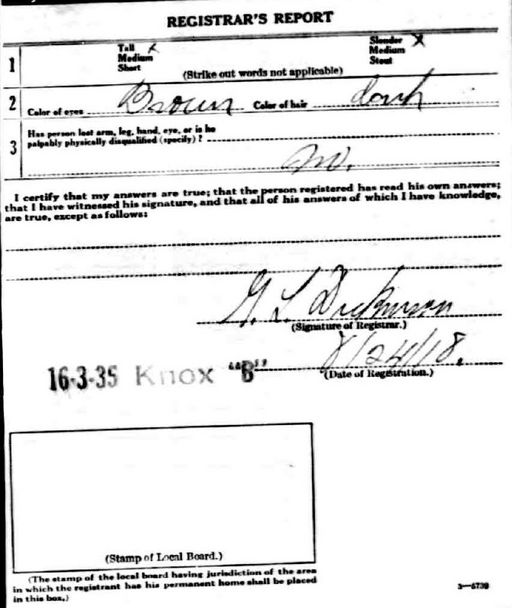 REGISTRAR'S REPORT
1 Tall x Slender X
Medium Medium
Short Stout
(Strike out words not applicable)
2 Color of eyes Brown Color of hair dark
3 Has person lost arm, leg, hand, eye, or is he
palpably physically disqualified (specify)?
no.
I certify that my answers are true; that the person registered has read his own answers;
that I have witnessed his signature, and that all of his answers of which I have knowledge,
are true, except as follows:
G. L. Dickinson
(Signature of Registrar.)
8/24/18.
16-3-35 Knox "B"
(Date of Registration.)
(Stamp of Local Board.)
(The stamp of the local board having jurisdiction of the area
in which the registrant has his permanent home shall be placed
in this box.)
3—6739